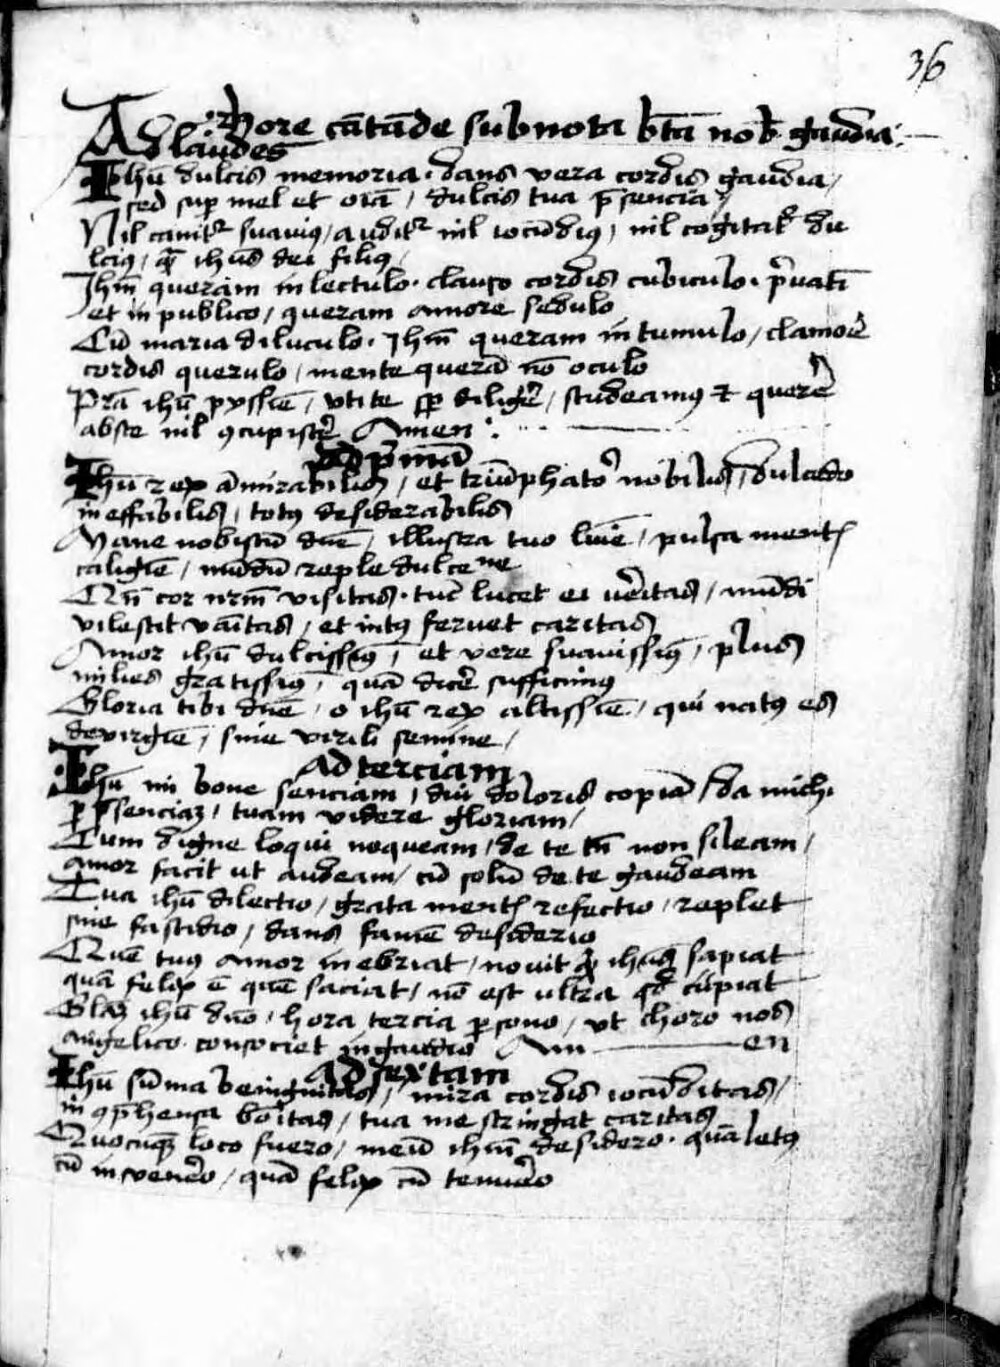 36
Hore cātāde sub nota btā nob gaudia.
Ad laudes
Ihū dulcis memoria. dans vera cordis gaudia/
sed sup mel et oīa / dulcis tua p̄sencia/
Nil canitr suavius / auditr nil iocūdiꝰ / nil cogitatr du
lciꝰ / qꝫ ihūs dei filiꝰ /
Ihm̄ queram in lectulo. clauso cordis cubiculo. p̄vatī
et in publico / queram amore sedulo
Cū maria diluculo. Ihm̄ queram in tumulo / clamoē
cordis querulo / mente querā nō oculo
Prā ihū pyssiē / vti te sp diligē / studeamꝰ et querē
abs te nil ꝯcupiscē Amen :
Ad p̄mā
Ihū rex āmirabilis / et triūphator nobilis / dulcedo
ineffabilis / totꝰ desiderabilis
Mane nobiscū dnē / illustra tuo luīe / pulsa mentꝭ
caligīe / mūdū reple dulcene
Qn̄ cor nrm̄ visitas. tūc lucet ei v̄itas / mūdi
vilescit vāitas / et intꝰ fervet caritas
Amor ihū dulcissiꝰ / et vere suavissiꝰ / plus
milies gratissiꝰ / quā dicē sufficimꝰ
Gloria tibi dnē / o ihū rex altissiē / qui natꝰ es
de virgīe / sine virili semine /
Ad terciam
Ihū mi bone senciam / dui doloris copiā / da michi
ꝑ p̄senciaꝫ / tuam videre gloriam /
Cum digne loqui nequeam / de te tn̄ non sileam /
amor facit ut audeam / cū solū de te gaudeam
Tua ihū dilectio / grata mentꝭ refectio / replet
sine fastidio / dans famē desiderio
Quē tuꝰ amor inebriat / novit qd ihūs sapiat
quā felix ē quē saciat / nō est ultra qd cūpiat
Glaꝫ ihū dnō / hora tercia ꝑsono / ut choro nos
angelico. consociet in gaudio Am en
Ad sextam
Ihū sūma benignitas / mira cordis iocūditas /
inꝯp̄hensa bōitas / tua me stringat caritas
Quocūqꝫ loco fuero / meū ihm̄ desidero. quā letꝰ
cū invenēo / quā felix cū tenuēo